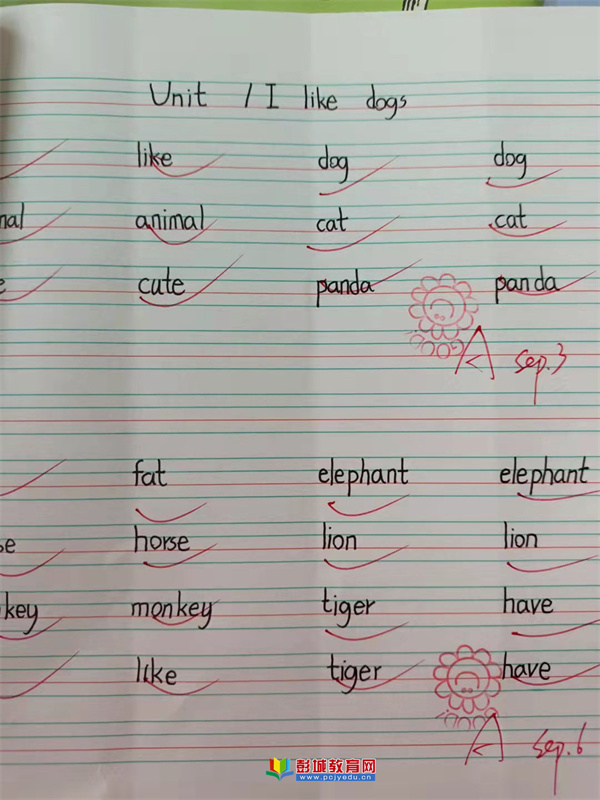 Unit 1 I like dogs
like dog dog
nal animal cat cat
e cute panda panda
GOOD A sep.3
fat elephant elephant
se horse lion lion
key monkey tiger have
like tiger have
GOOD A sep.6
彭城教育网
www.pcjyedu.cn